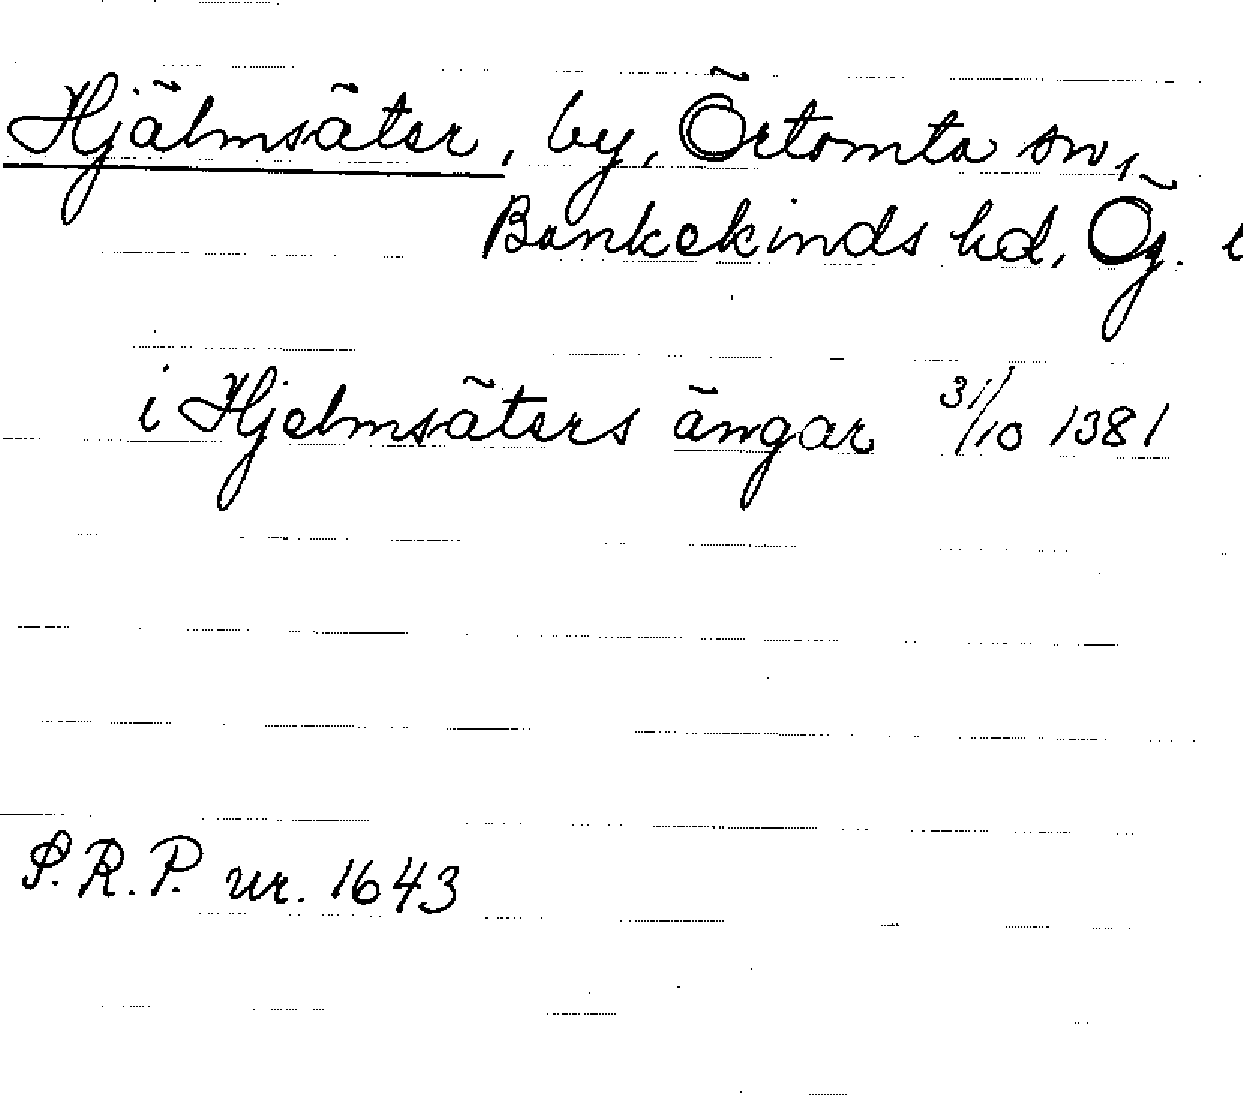 Hjälmsäter, by, Örtomta sn,
Bankekinds hd, Ög.
i Hjelmsäters ängar 31/10 1381
S.R.P. nr. 1643